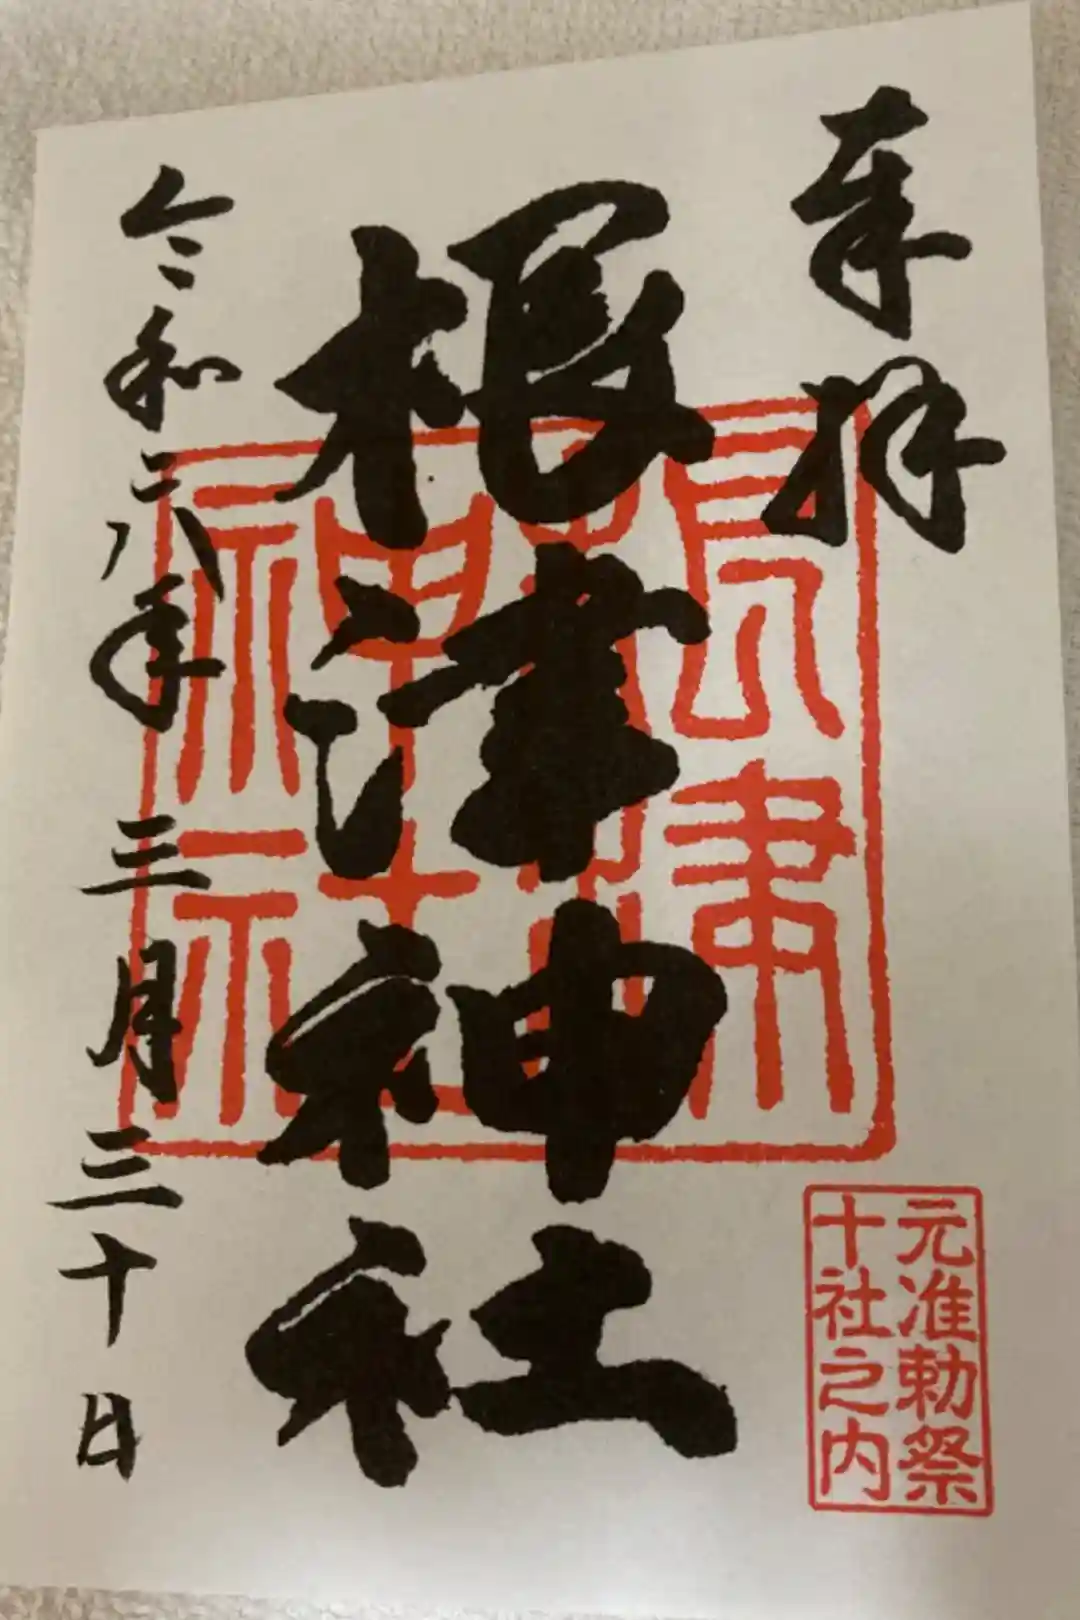 奉拝
根津神社
令和六年三月三十日
根津
神社
元准勅祭
十社之内